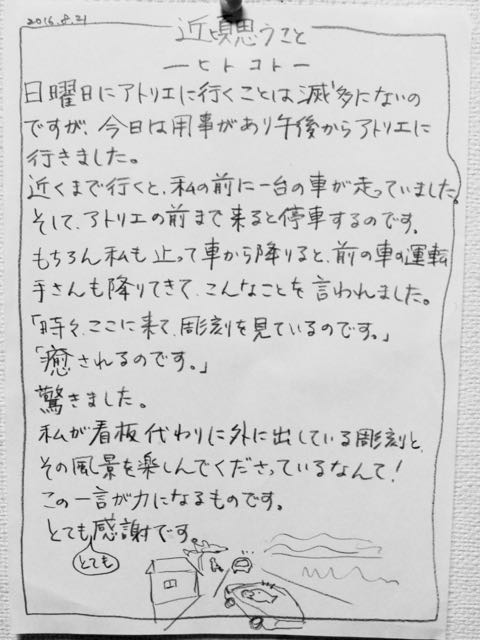 2016.8.21
近頃思うこと
ーヒトコトー
日曜日にアトリエに行くことは滅多にないの
ですが、今日は用事があり午後からアトリエに
行きました。
近くまで行くと、私の前に一台の車が走っていました。
そして、アトリエの前まで来ると停車するのです。
もちろん私も止って車から降りると、前の車の運転
手さんも降りてきて、こんなことを言われました。
「時々、ここに来て、彫刻を見ているのです。」
「癒されるのです。」
驚きました。
私が看板代わりに外に出している彫刻と、
その風景を楽しんでくださっているなんて!
この一言が力になるものです。
とても感謝です。
とても